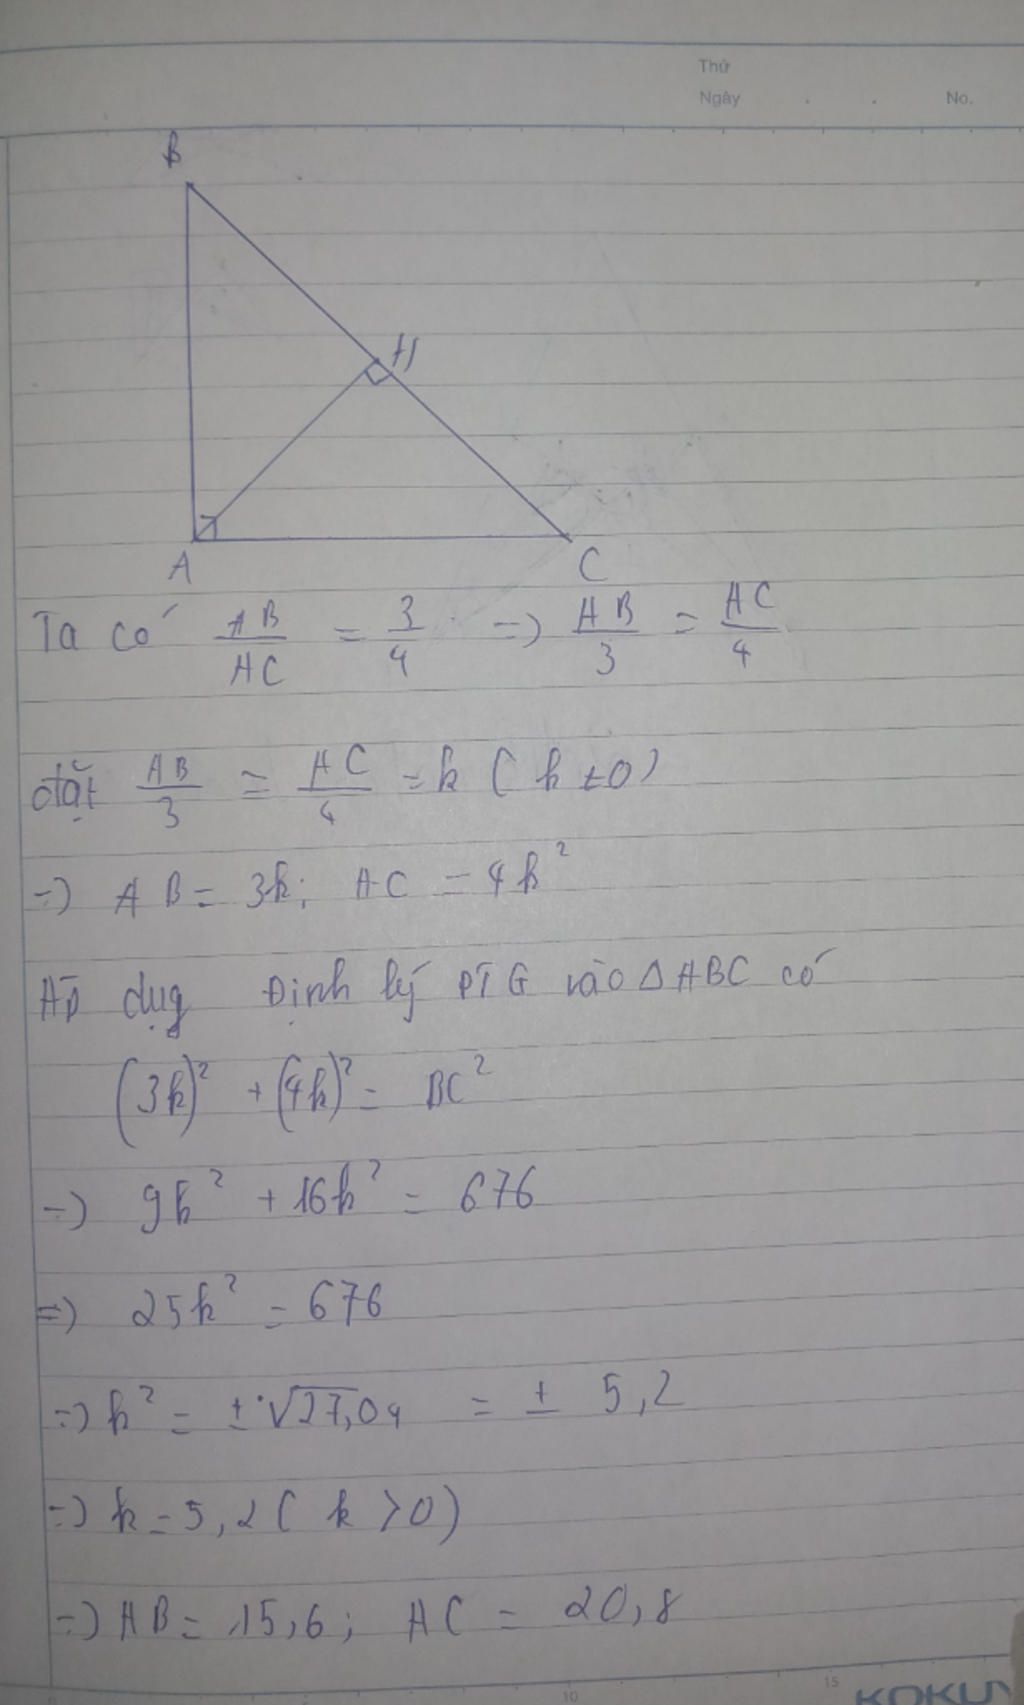 Thứ
Ngày . . No.
B
H
A
C
Ta có AB/AC = 3/4 => AB/3 = AC/4
đặt AB/3 = AC/4 = k ( k ≠ 0 )
=> AB = 3k; AC = 4k²
Áp dụg Định lý PTG vào △ABC có
(3k)² + (4k)² = BC²
=> 9k² + 16k² = 676
=> 25k² = 676
=> k² = ±√27,04 = ± 5,2
=> k = 5,2 ( k > 0 )
=> AB = 15,6; AC = 20,8
10 15